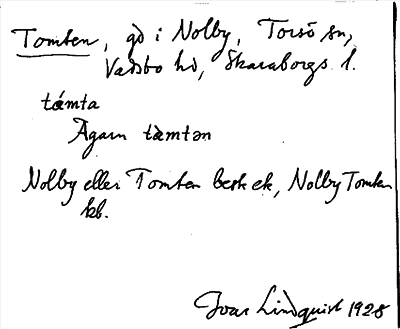 Tomten, gd i Nolby, Torsö sn,
Vadsbo hd, Skaraborgs l.
tǻmta
Ägarn tæ̀mtən
Nolby eller Tomten besk ek, Nolby Tomten
kb.
Ivar Lindquist 1928